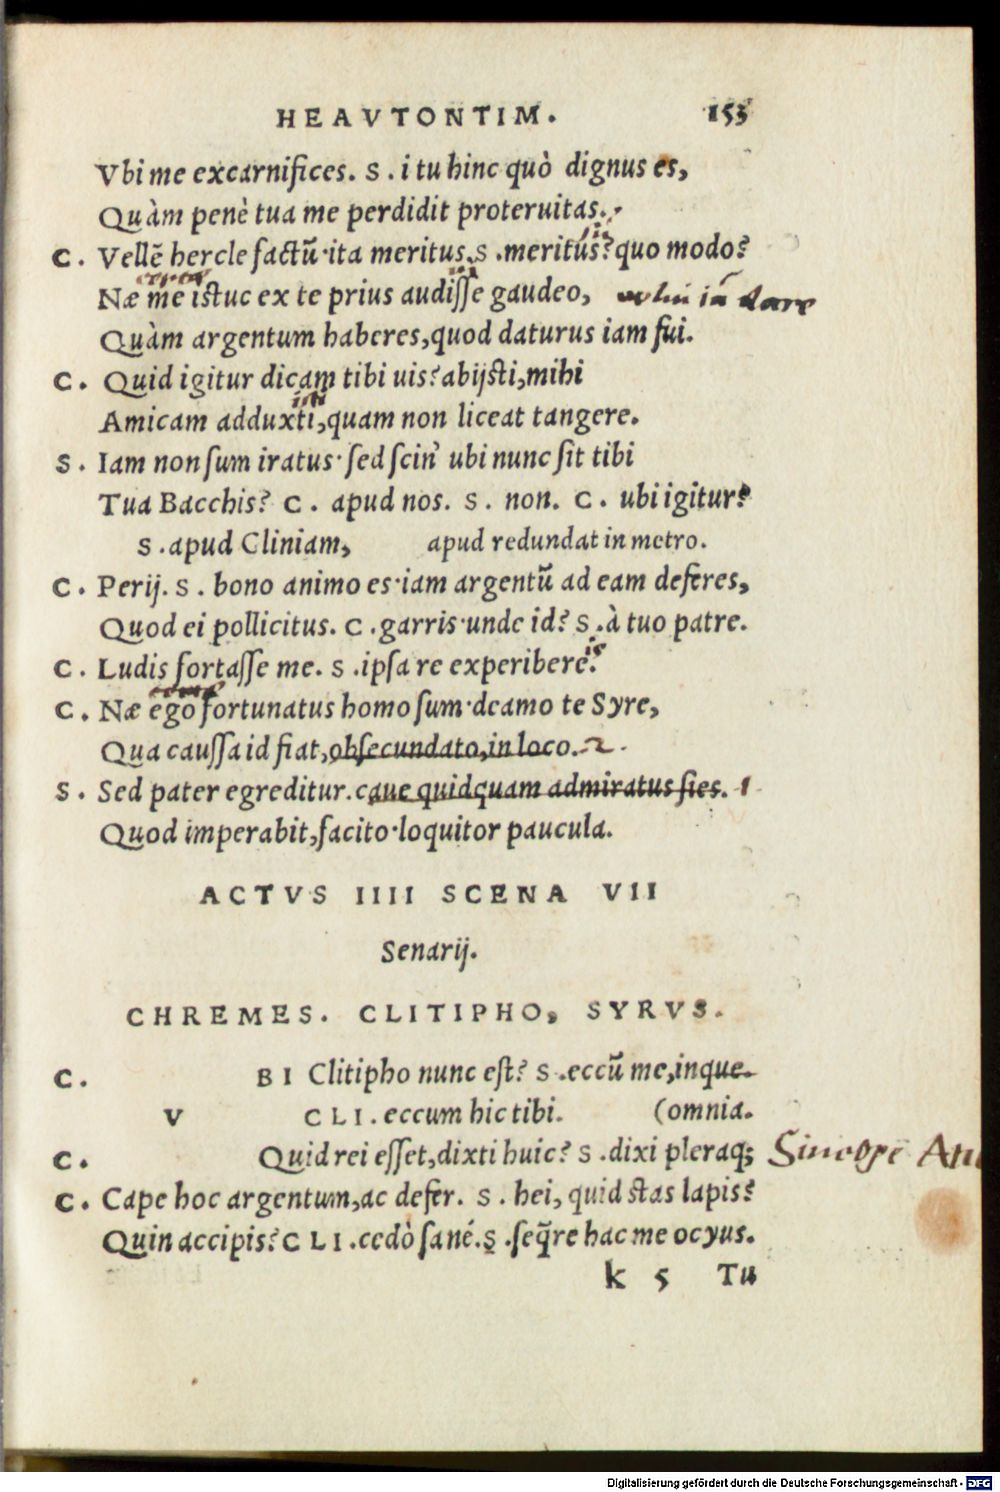 HEAVTONTIM. 153
Vbi me excarnifices. S. i tu hinc quò dignus es,
Quàm penè tua me perdidit proteruitas.
C. Vellẽ hercle factũ·ita meritus. S. meritus? quo modo?
Næ me istuc ex te prius audiſſe gaudeo,
Quàm argentum haberes, quod daturus iam fui.
C. Quid igitur dicam tibi uis? abijsti, mihi
Amicam adduxti, quam non liceat tangere.
S. Iam non ſum iratus· ſed ſcin' ubi nunc ſit tibi
Tua Bacchis? C. apud nos. S. non. C. ubi igitur?
S. apud Cliniam, apud redundat in metro.
C. Perij. S. bono animo es·iam argentũ ad eam deferes,
Quod ei pollicitus. C. garris·unde id? S. à tuo patre.
C. Ludis fortaſſe me. S. ipſa re experibere.
C. Næ ego fortunatus homo ſum·deamo te Syre,
Qua cauſſa id fiat, obſecundato, in loco. 2.
S. Sed pater egreditur. caue quidquam admiratus ſies. 1
Quod imperabit, facito·loquitor paucula.
ACTVS IIII SCENA VII
Senarij.
CHREMES. CLITIPHO, SYRVS.
C. BI Clitipho nunc eſt? S. eccũ me, inque.
V CLI. eccum hic tibi. (omnia.
C. Quid rei eſſet, dixti huic? S. dixi pleraq;
C. Cape hoc argentum, ac defer. S. hei, quid stas lapis?
Quin accipis? CLI. cedò ſané. S. ſeq̃re hac me ocyus.
k 5 Tu
Digitalisierung gefördert durch die Deutsche Forschungsgemeinschaft - DFG